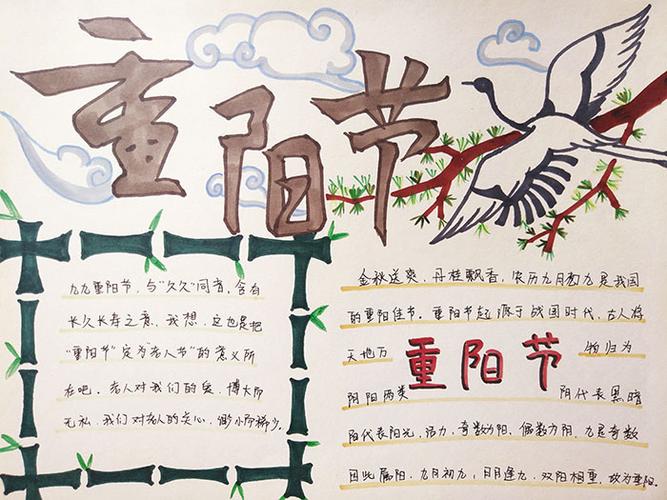 重阳节
九九重阳节，与“久久”同音，含有
长久长寿之意，我想，这也是把
“重阳节”定为“老人节”的意义所
在吧。老人对我们的爱，博大而
无私，我们对老人的关心，却少而稀少。
金秋送爽，丹桂飘香，农历九月初九是我国
的重阳佳节。重阳节起源于战国时代，古人将
天地万 物归为
重阳节
阴阳两类 阴代表黑暗
阳代表阳光，活力，奇数为阳，偶数为阴，九是奇数
因此属阳，九月初九，日月逢九，双阳相重，故为重阳。